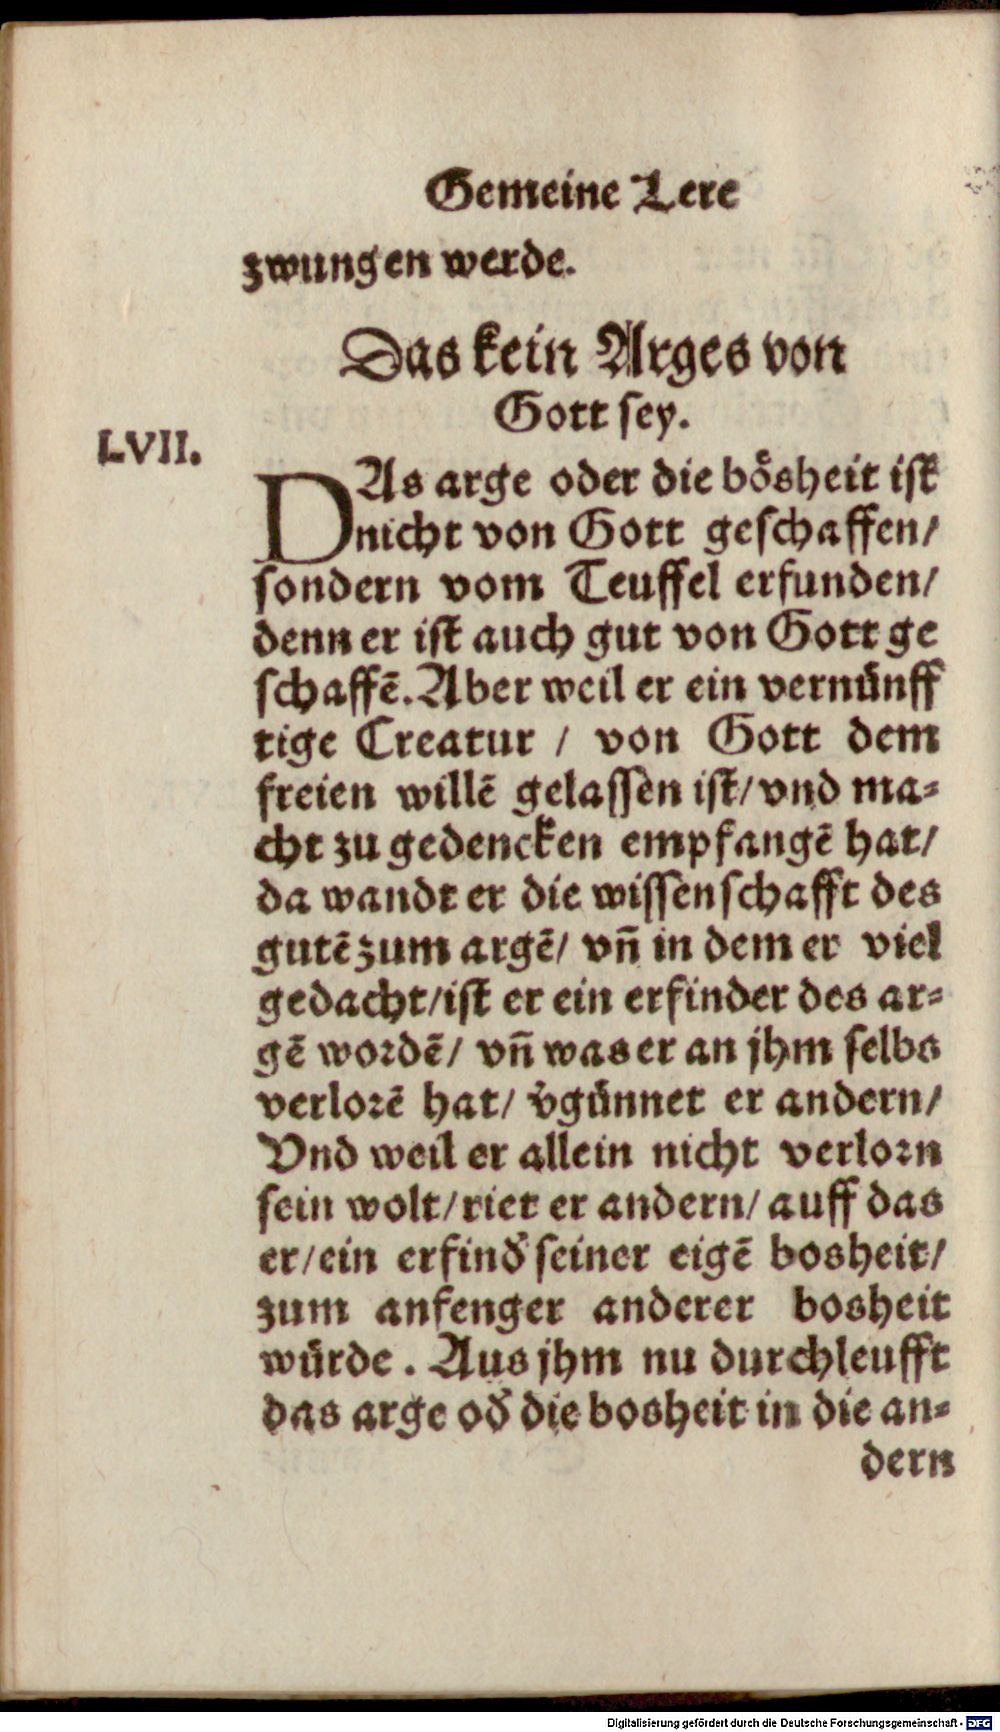 Gemeine Lere
zwungen werde.
Das kein Arges von
Gott sey.
LVII.
DAs arge oder die boͤsheit ist
nicht von Gott geschaffen/
sondern vom Teuffel erfunden/
denn er ist auch gut von Gott ge
schaffē. Aber weil er ein vernuͤnff
tige Creatur / von Gott dem
freien willē gelassen ist/ vnd ma⸗
cht zu gedencken empfangē hat/
da wandt er die wissenschafft des
gutē zum argē/ vn̄ in dem er viel
gedacht/ist er ein erfinder des ar⸗
gē wordē/ vn̄ was er an jhm selbs
verlorē hat/ v̓guͤnnet er andern/
Vnd weil er allein nicht verlorn
sein wolt/riet er andern/ auff das
er/ein erfind̓ seiner eigē bosheit/
zum anfenger anderer bosheit
wuͤrde. Aus jhm nu durchleufft
das arge od̓ die bosheit in die an⸗
dern
Digitalisierung gefördert durch die Deutsche Forschungsgemeinschaft - DFG